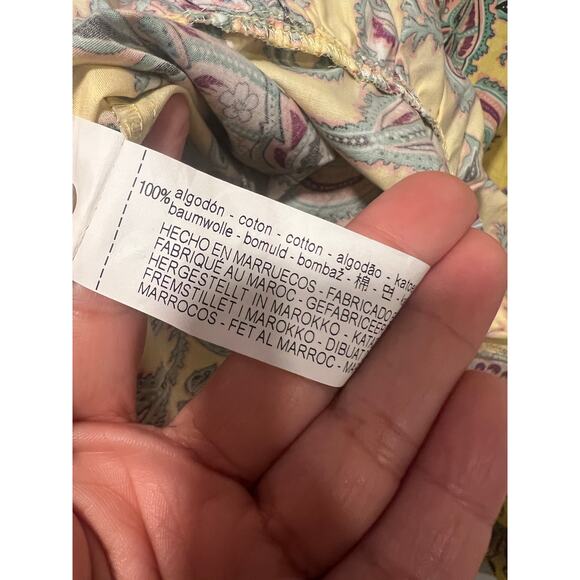 100% algodón - coton - cotton - algodão -
baumwolle - bomuld - bombaž - 棉 - 면 -
HECHO EN MARRUECOS - FABRICADO
FABRIQUÉ AU MAROC - GEFABRICEER
HERGESTELLT IN MAROKKO - KATA
FREMSTILLET I MAROKKO - DIBUAT
MARROCOS - FET AL MARROC - MA